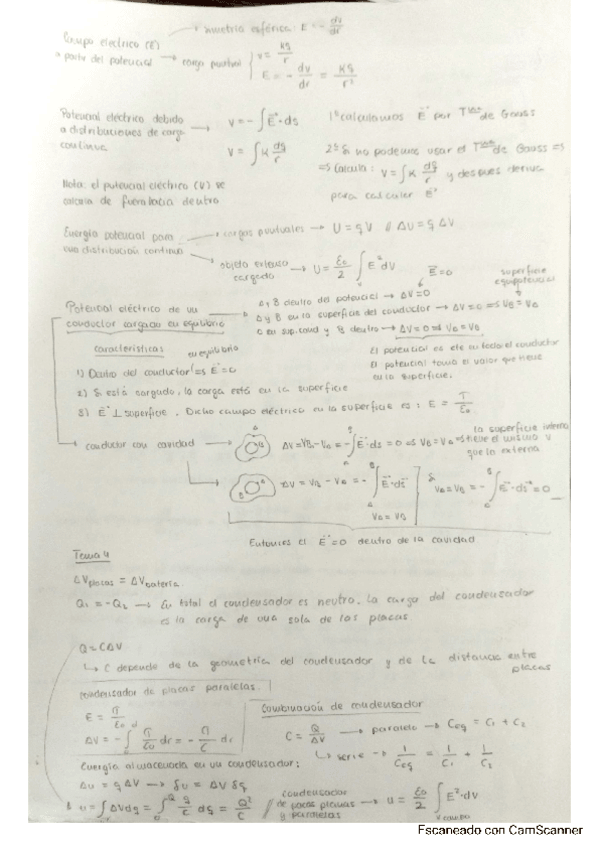 simetría esférica: E = - dv/dr
Campo eléctrico (E)
a partir del potencial → carga puntual { V = Kq/r
E = - dv/dr = Kq/r²
Potencial eléctrico debido
a distribuciones de carga
continua
→ V = -∫E·ds
V = ∫K dq/r
1º calculamos E por T de Gauss
2º Si no podemos usar el T de Gauss =>
=> Calcula: V = ∫K dq/r y después deriva
para calcular E
Nota: el potencial eléctrico (V) se
calcula de fuera hacia dentro
Energía potencial para
una distribución continua
cargas puntuales → U = qV ó ΔU = qΔV
objeto extenso
cargado → U = ε₀/2 ∫E² dV
E = 0
superficie
equipotencial
Potencial eléctrico de un
conductor cargado en equilibrio
A y B dentro del potencial → ΔV = 0
A y B en la superficie del conductor → ΔV = 0 => VB = VA
y B dentro → ΔV = 0 => VB = VA
características
en equilibrio
El potencial es cte en todo el conductor
El potencial toma el valor que tiene
en la superficie.
1) Dentro del conductor E = 0
2) Si está cargado, la carga está en la superficie
3) E ⊥ superficie. Dicho campo eléctrico en la superficie es: E = σ/ε₀
conductor con cavidad → ΔV = VB - VA = -∫E·ds = 0 => VB = VA =>
la superficie interna
tiene el mismo V
que la externa
ΔV = VB - VA = -∫E·ds
VA = VB
Si
VA = VB = -∫E·ds = 0
Entonces el E = 0 dentro de la cavidad
Tema 4
ΔVplacas = ΔVbatería
Q₁ = -Q₂ → En total el condensador es neutro. La carga del condensador
es la carga de una sola de las placas
Q = CΔV
↳ C depende de la geometría del condensador y de la distancia entre
placas
condensador de placas paralelas.
E = σ/ε₀
ΔV = -∫ σ/ε₀ dr = - σ/ε dr
Combinación de condensador
C = Q/ΔV → paralelo → Ceq = C₁ + C₂
↳ serie → 1/Ceq = 1/C₁ + 1/C₂
Energía almacenada en un condensador:
ΔU = qΔV → δU = ΔV δq
U = ∫ΔVdq = ∫ q/C dq = Q²/C
condensador
de placas planas
y paralelas → U = ε₀/2 ∫E²·dV
V campo
Escaneado con CamScanner